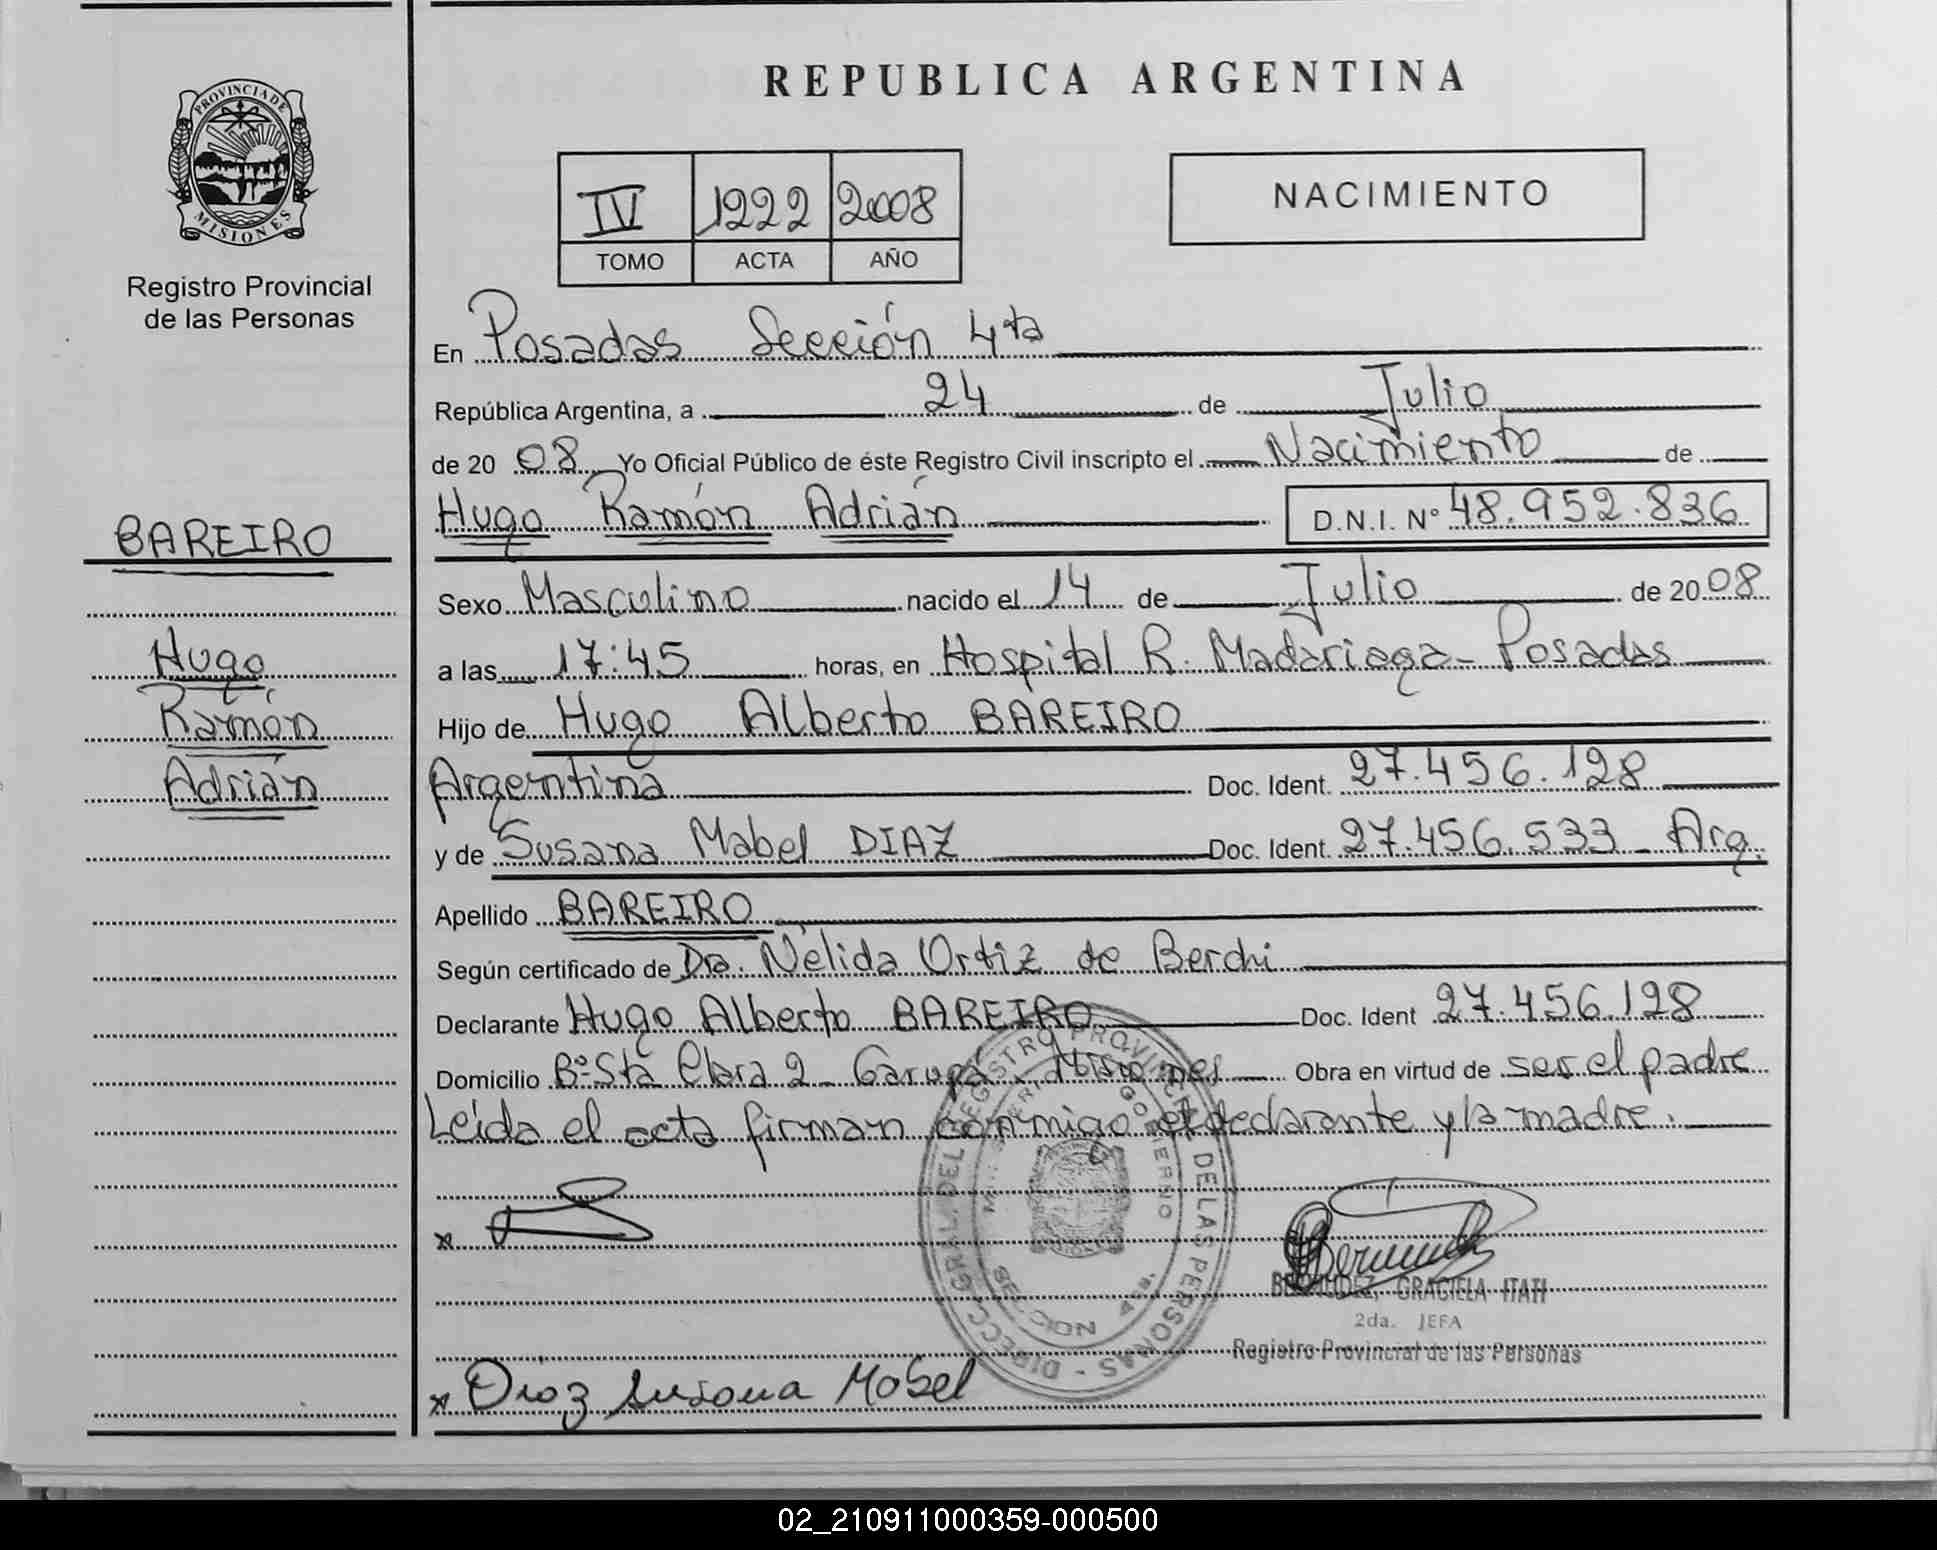 PROVINCIA DE
MISIONES
Registro Provincial
de las Personas
BAREIRO
Hugo
Ramón
Adrián
REPUBLICA ARGENTINA
IV 1222 2008
TOMO ACTA AÑO
NACIMIENTO
En Posadas Sección 4ta
República Argentina, a 24 de Julio
de 20 08 Yo Oficial Público de éste Registro Civil inscripto el Nacimiento de
Hugo Ramón Adrián D.N.I. N° 48.952.836
Sexo Masculino nacido el 14 de Julio de 20 08
a las 17:45 horas, en Hospital R. Madariaga - Posadas
Hijo de Hugo Alberto BAREIRO
Argentina Doc. Ident. 27.456.128
y de Susana Mabel DIAZ Doc. Ident. 27.456.533 - Arg.
Apellido BAREIRO
Según certificado de Dra. Nélida Ortiz de Berchi
Declarante Hugo Alberto BAREIRO Doc. Ident 27.456.128
Domicilio B° Sta Clara 2 - Garupá - Misiones Obra en virtud de ser el padre
Leída el acta firman conmigo el declarante y la madre.
DIRECC. GRAL. DEL REGISTRO PROVINCIAL DE LAS PERSONAS -
MINISTERIO GOBIERNO
SECCION 4ta.
x
BERMUDEZ, GRACIELA ITATI
2da. JEFA
Registro Provincial de las Personas
x Diaz Susana Mabel
02_210911000359-000500